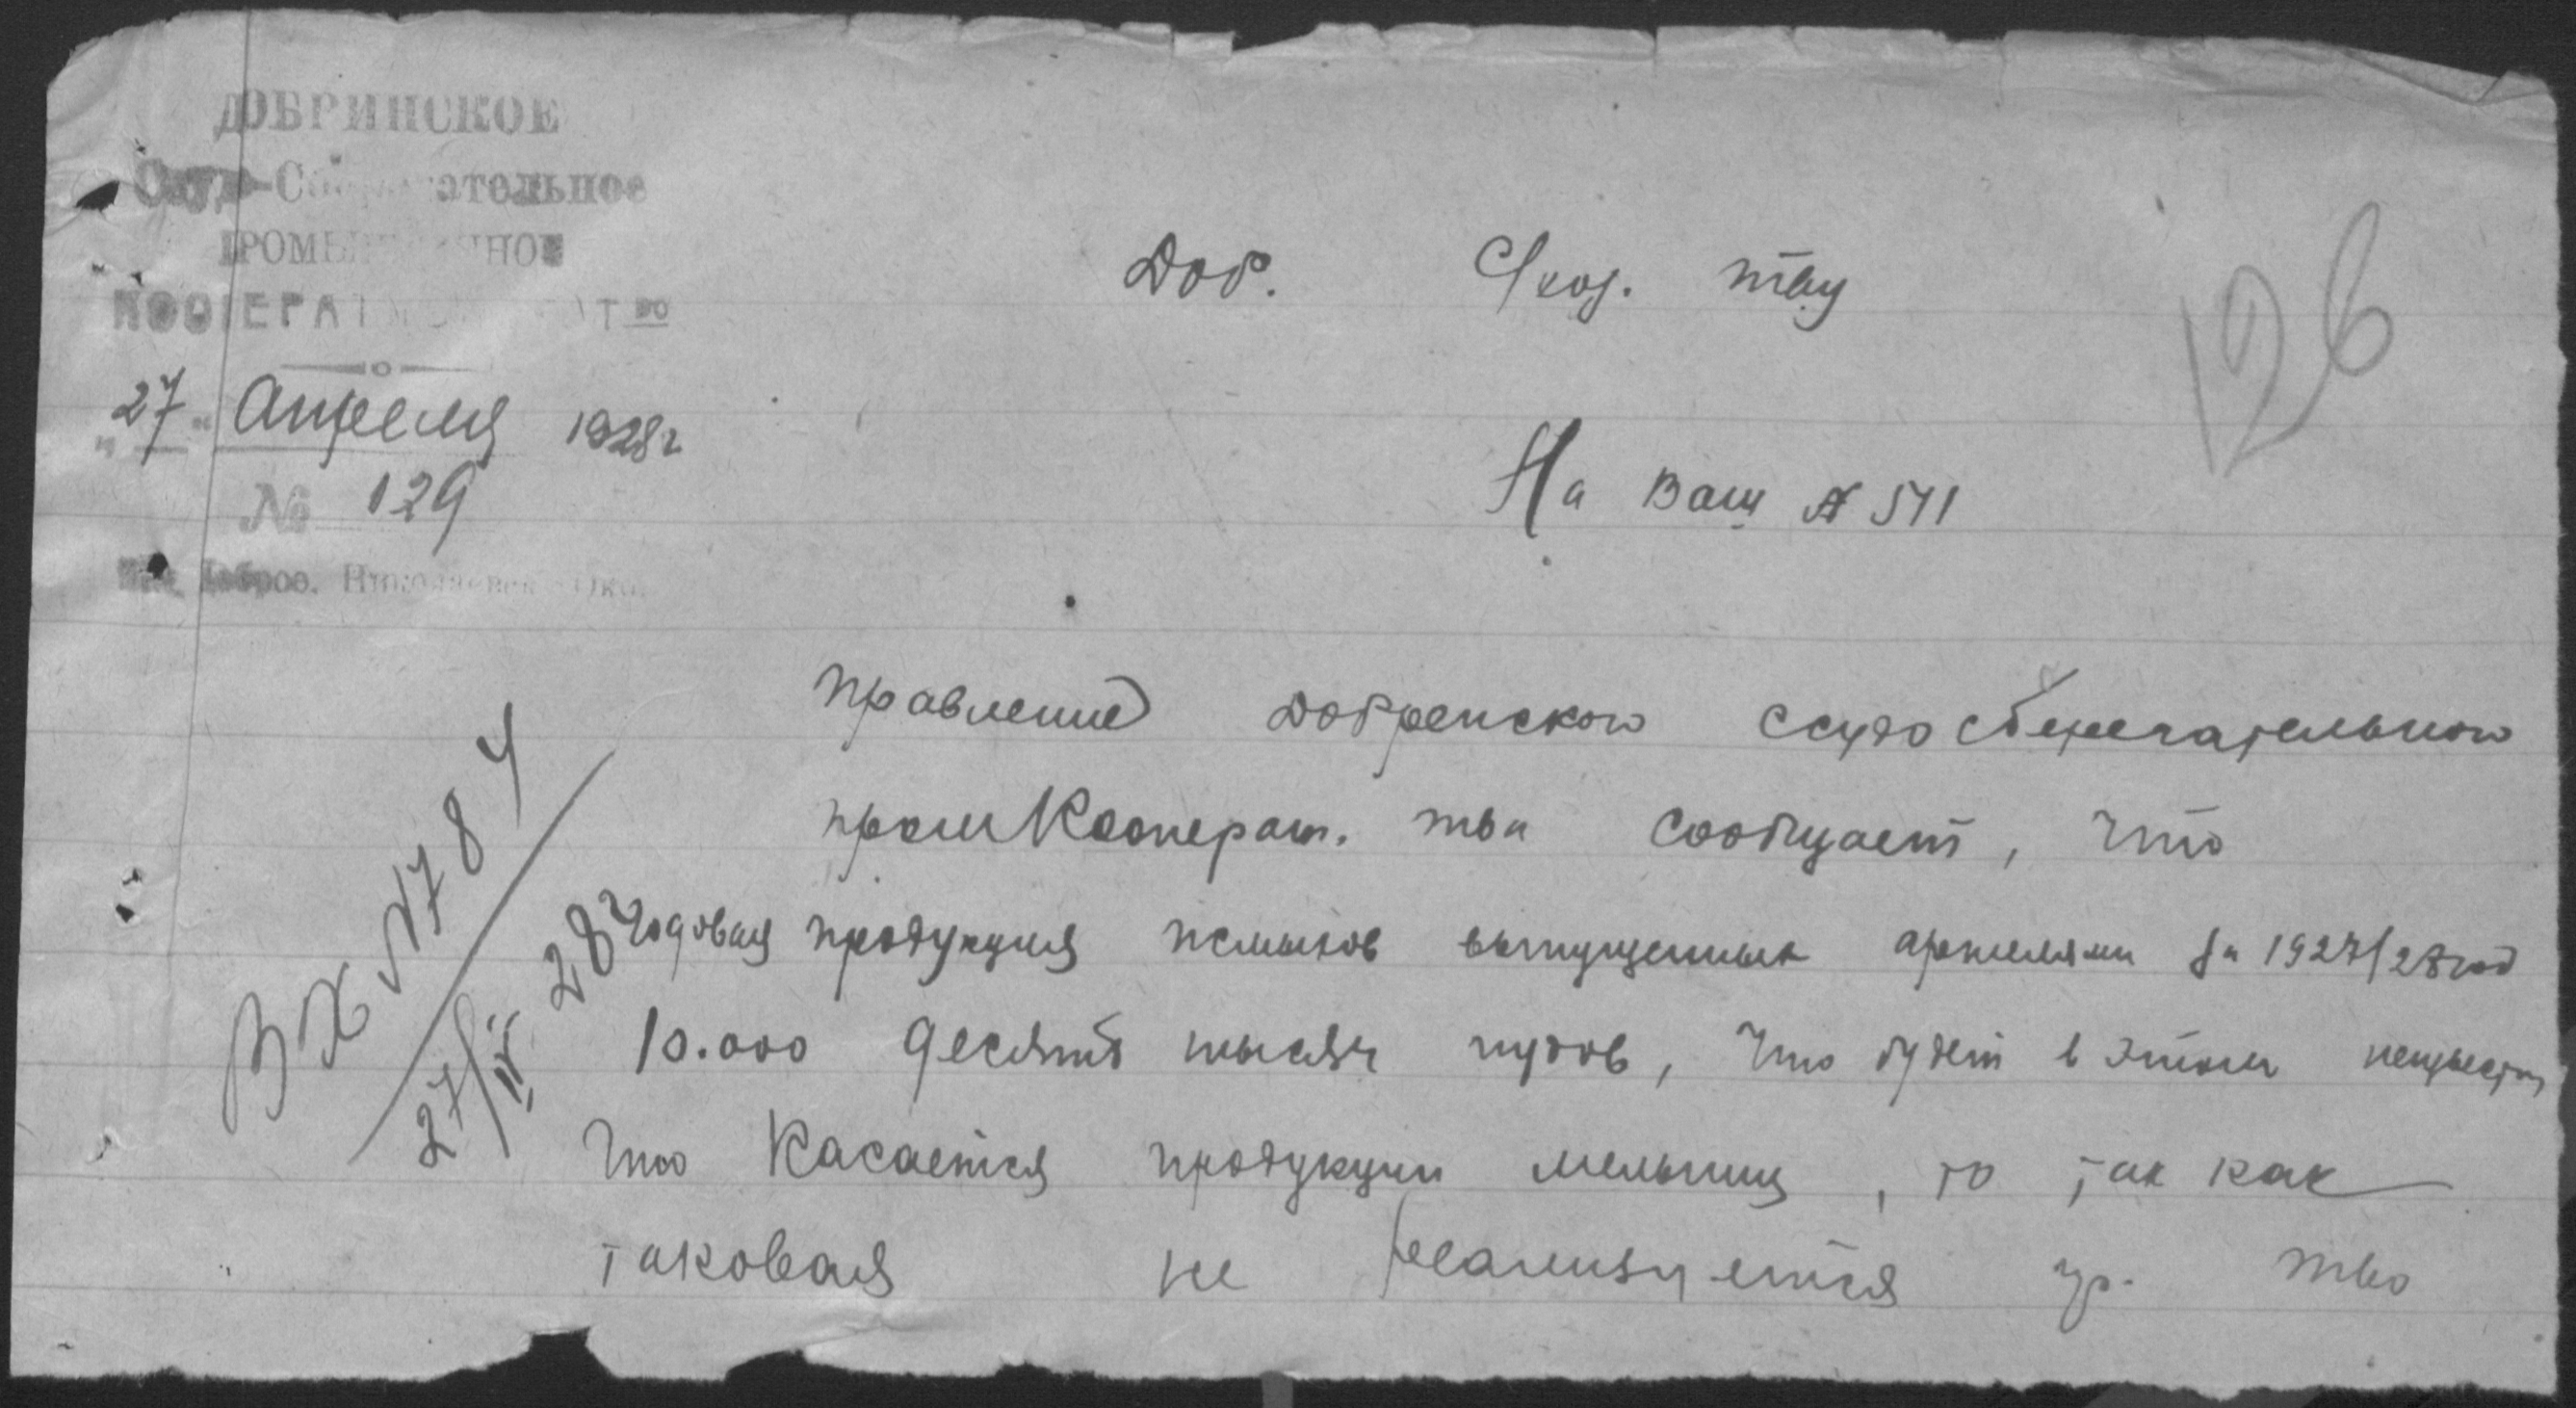 ДОБРИНСКОЕ
Ссудо-Сберегательное
ПРОМЫШЛЕННОЕ
КООПЕРАТ Т-ВО
„27“ Апреля 1928 г
№ 129
Доброе. Николаевск Окр.
Доб. тву
126
На Ваш № 541
Правление Добренского ссудо сберегательного
пром Кооперат. тва сообщает, что
годовая продукция выпущенных артелями за 1927/28 год
10.000 десять тысяч пудов, что будет в этом неизвестн
Что Касается продукции мельниц, то так как
таковая не реализуется тво
Вх N 784
27/IV 28 г